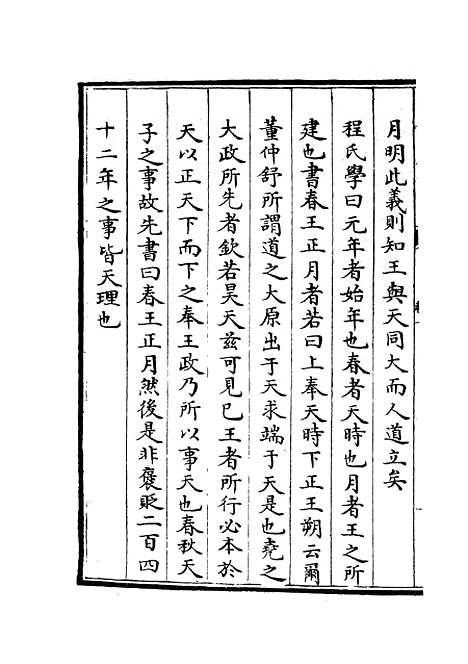 月明此義則知王與天同大而人道立矣
程氏學曰元年者始年也春者天時也月者王之所
建也書春王正月者若曰上奉天時下正王朔云爾
董仲舒所謂道之大原出于天求端于天是也堯之
大政所先者欽若昊天兹可見已王者所行必本於
天以正天下而下之奉王政乃所以事天也春秋天
子之事故先書曰春王正月然後是非襃貶二百四
十二年之事皆天理也